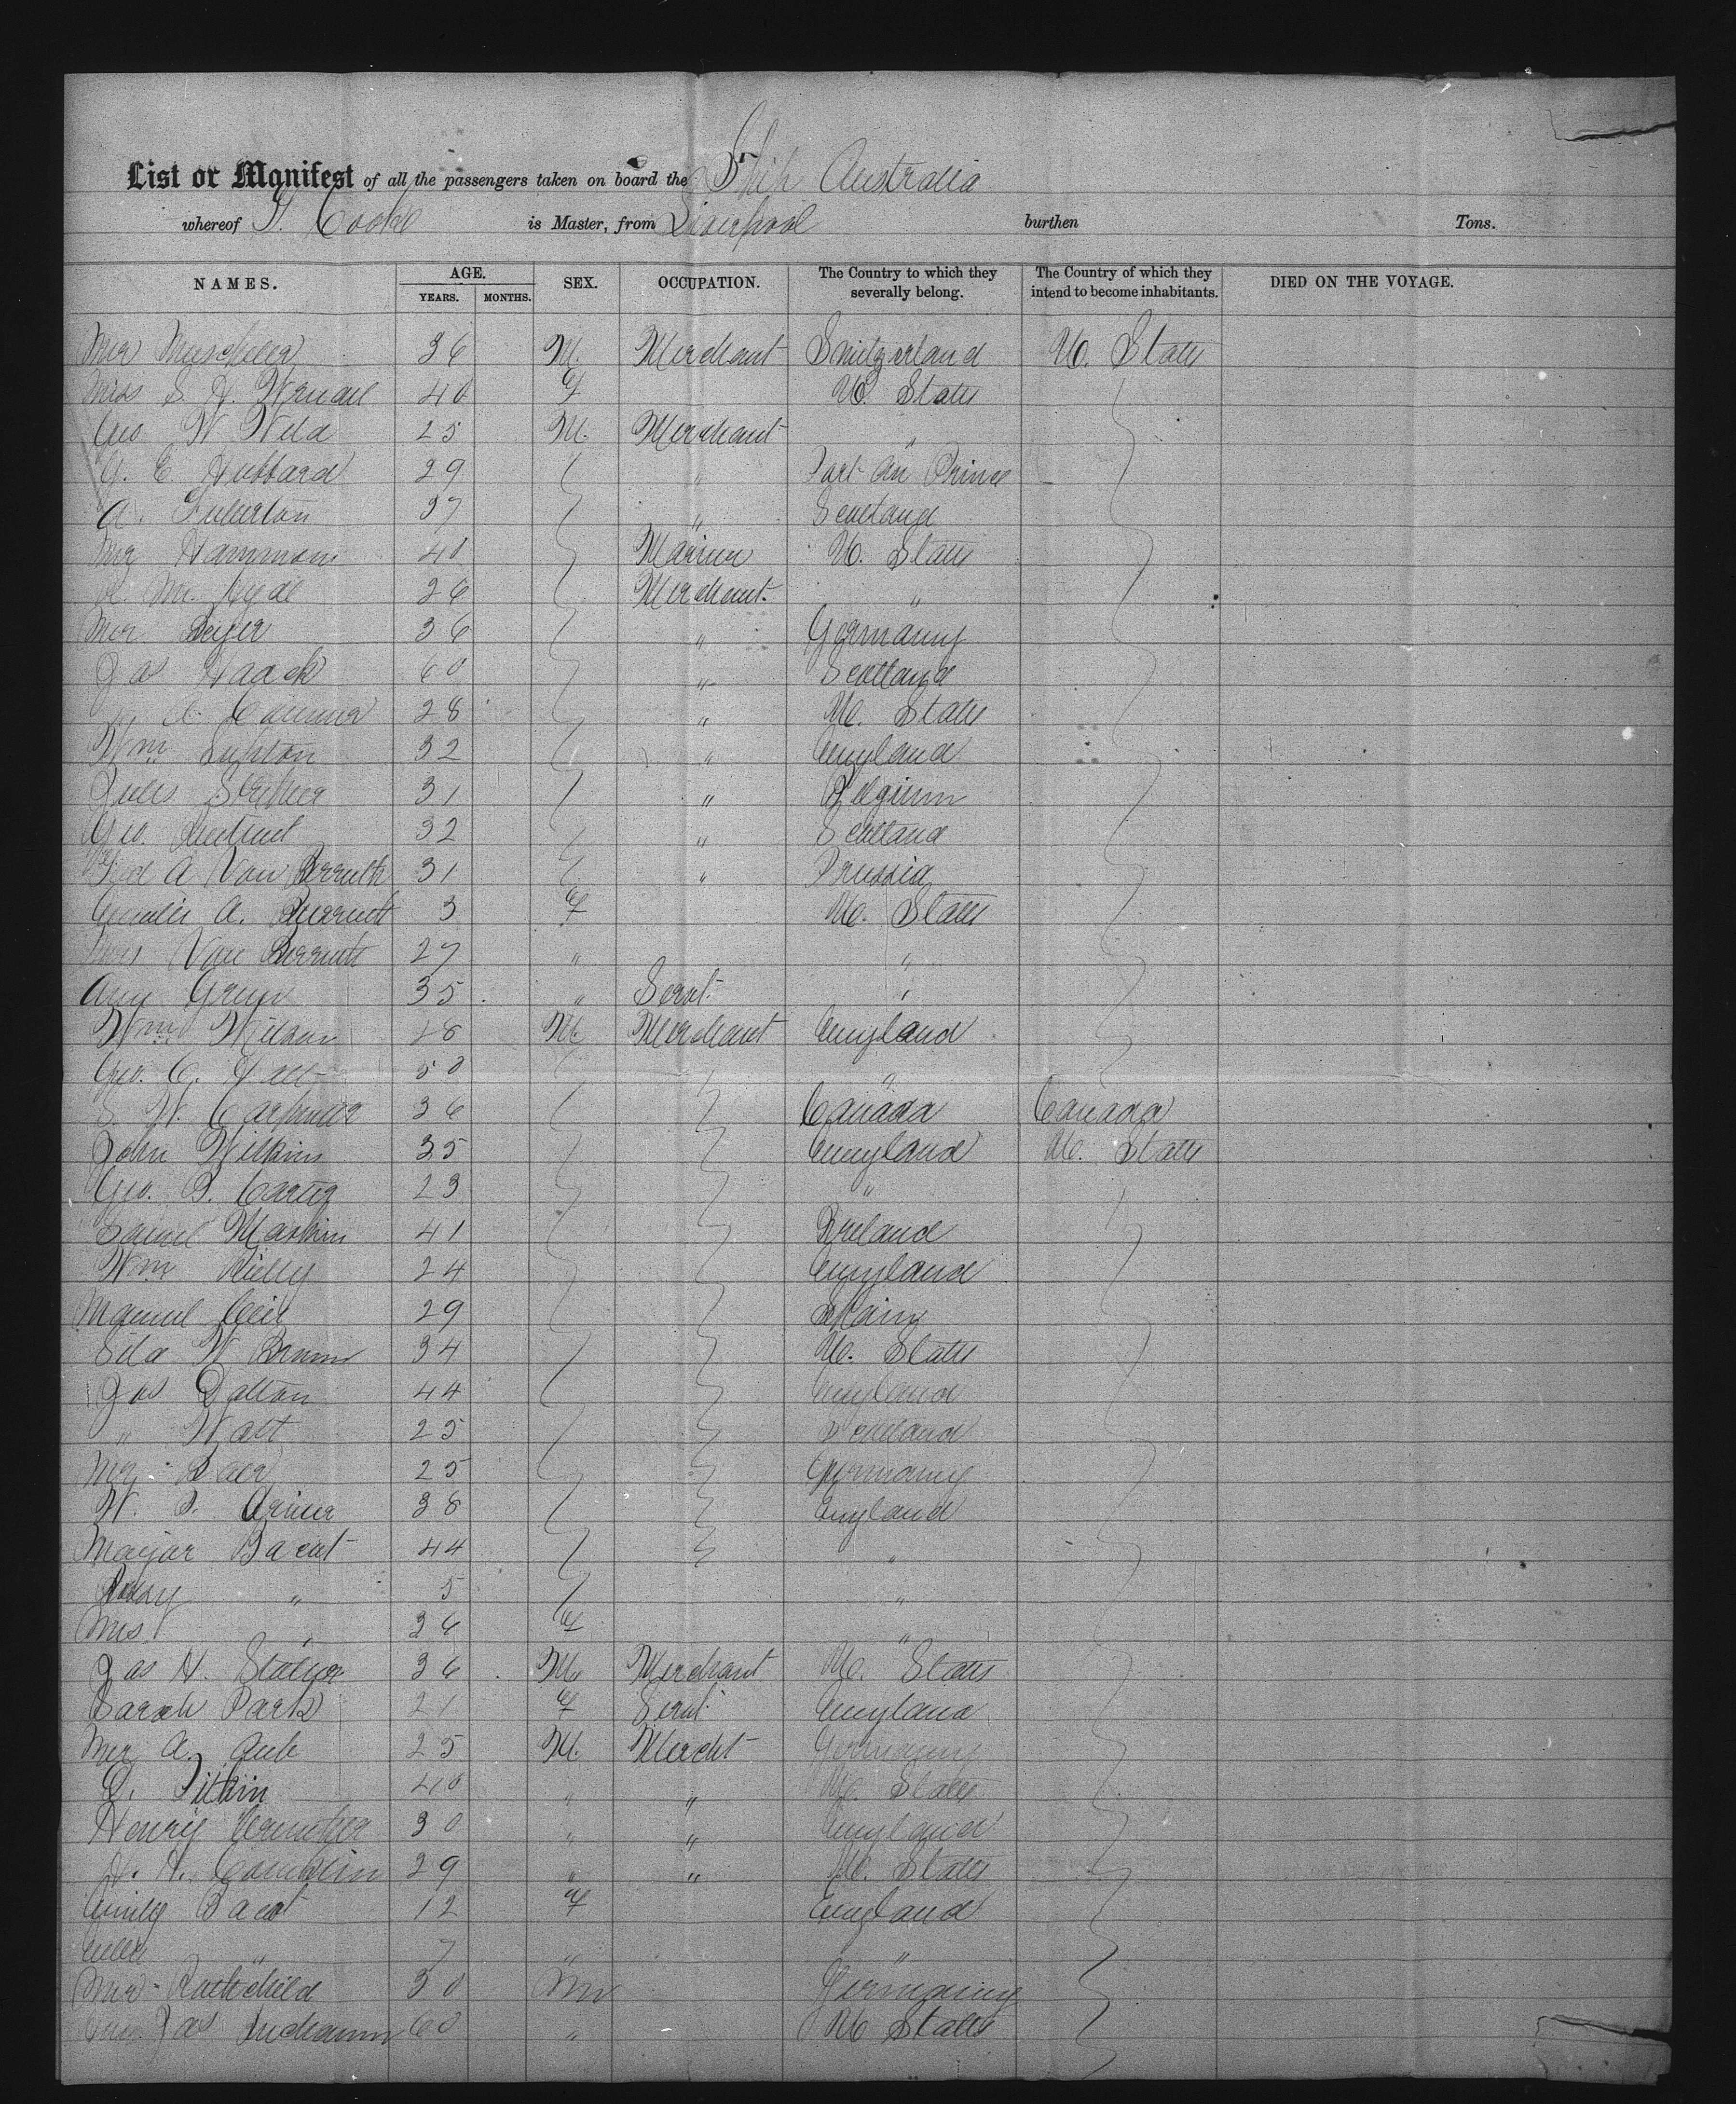 List or Manifest of all the passengers taken on board the Ship Australia
whereof J. Cook is Master, from Liverpool burthen Tons.
NAMES. AGE. SEX. OCCUPATION. The Country to which they severally belong. The Country of which they intend to become inhabitants. DIED ON THE VOYAGE.
YEARS. MONTHS.
Mr 36 M. Merchant Switzerland U. States
Miss S. 40 F U. States
Geo W Weld 25 M. Merchant "
G. E. Hubbard 29 " Port au Prince
A. Fulerton 37 " Scotland
Mr Hammon 40 Mariner U. States
Hyde 26 Merchant "
Mr Beyer 36 " Germany
Jas Haack 60 " Scotland
28 " U. States
Wm Lupton 32 " England
Jules 31 " Belgium
Geo. 32 " Scotland
Fred A Von Bernuth 31 " Prussia
A. Bernuth 3 F U. States
Mrs Von Bernuth 27 " "
Ann Green 35 " Servt. "
Wm Wilson 48 M. Merchant England
Geo. C. 50 "
S. W. Carpenter 36 Canada Canada
John Wilkins 35 England U. States
Geo. B. Carter 23 "
Maskin 41 Ireland
Wm Rielly 24 England
Manuel 29 Spain
W Brown 34 U. States
Jas Dalton 44 England
" Watt 25 Scotland
Mr Baer 25 Germany
W. 38 England
Major Bacot 44 "
" 5 "
Mrs " 26 F "
Jas H. 36 M. Merchant U. States
Sarah Park 21 F Servt. England
Mr A. Aub 25 M. Mercht Germany
Pitkin 40 " " U. States
Henry 30 " " England
H. H. 29 " " U. States
Emily Bacot 12 F England
" 7 " "
Mr Rothchild 30 M Germany
Jas 60 " U States